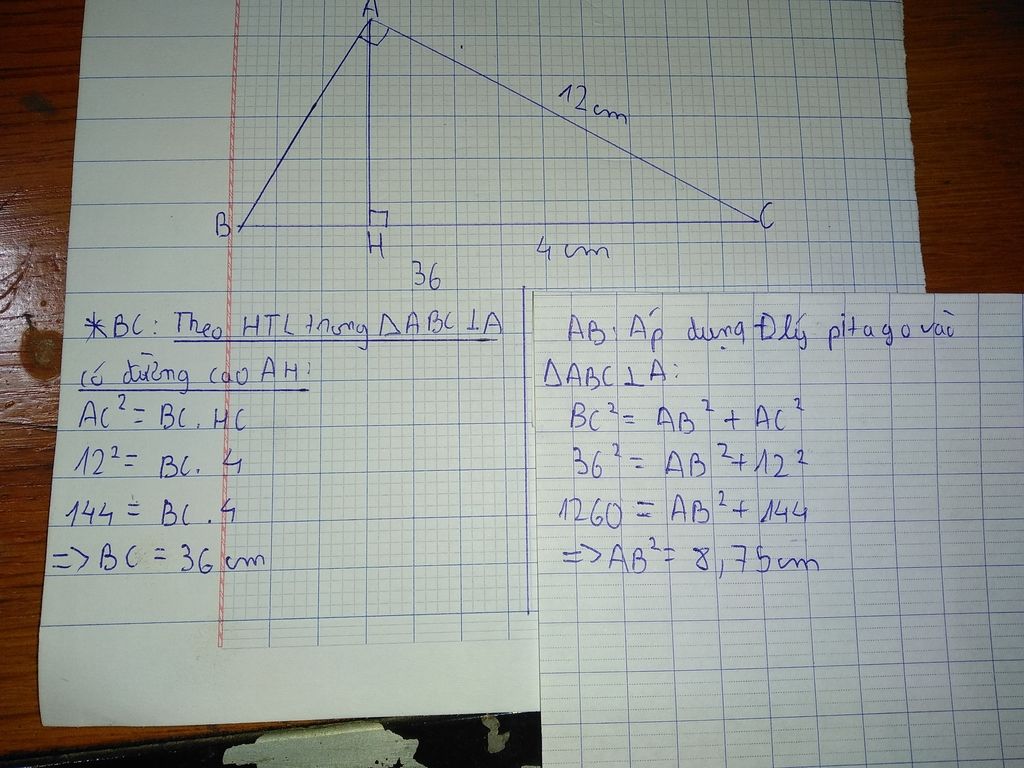 A
12cm
B
H
C
4 cm
36
*BC: Theo HTL trong ΔABC⊥A
có đường cao AH:
AC² = BC. HC
12² = BC. 4
144 = BC. 4
=> BC = 36 cm
AB: Áp dụng Đlý pitago vào
ΔABC⊥A:
BC² = AB² + AC²
36² = AB² + 12²
1260 = AB² + 144
=> AB² = 8,75cm